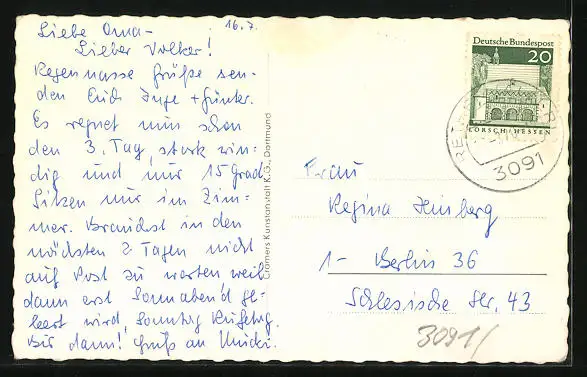 16.7.
Liebe Oma -
Lieber Volker!
Regennasse Grüße sen-
den Euch Inge + Günter.
Es regnet nun schon
den 3. Tag, stark win-
dig und nur 15 Grad
Sitzen nur im Zim-
mer. Brauchst in den
nächsten 2 Tagen nicht
auf Post zu warten weil
dann erst Sonnabend ge-
leert wird, Sonntag
Bis dann! Gruß an
Cramers Kunstanstalt K.G., Dortmund
Deutsche Bundespost
20
LORSCH/HESSEN
3091
Frau
Regina
1- Berlin 36
Schlesische Str. 43
3091/